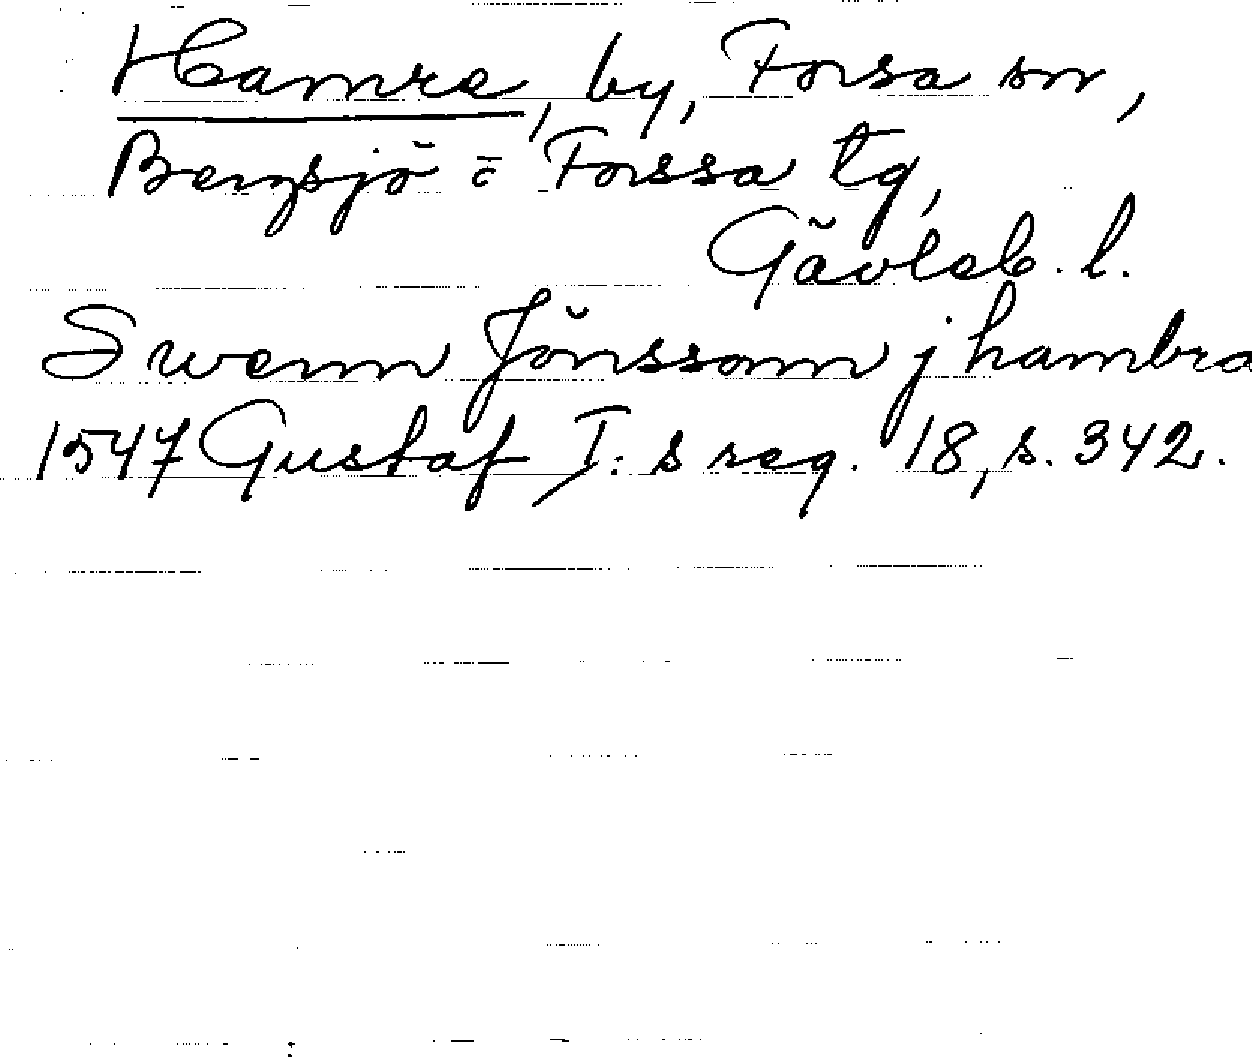 Hamre, by, Forsa sn,
Bergsjö o Forssa tg,
Gävleb. l.
Swenn Jönssonn j hambra
1547 Gustaf I:s reg. 18, s. 342.